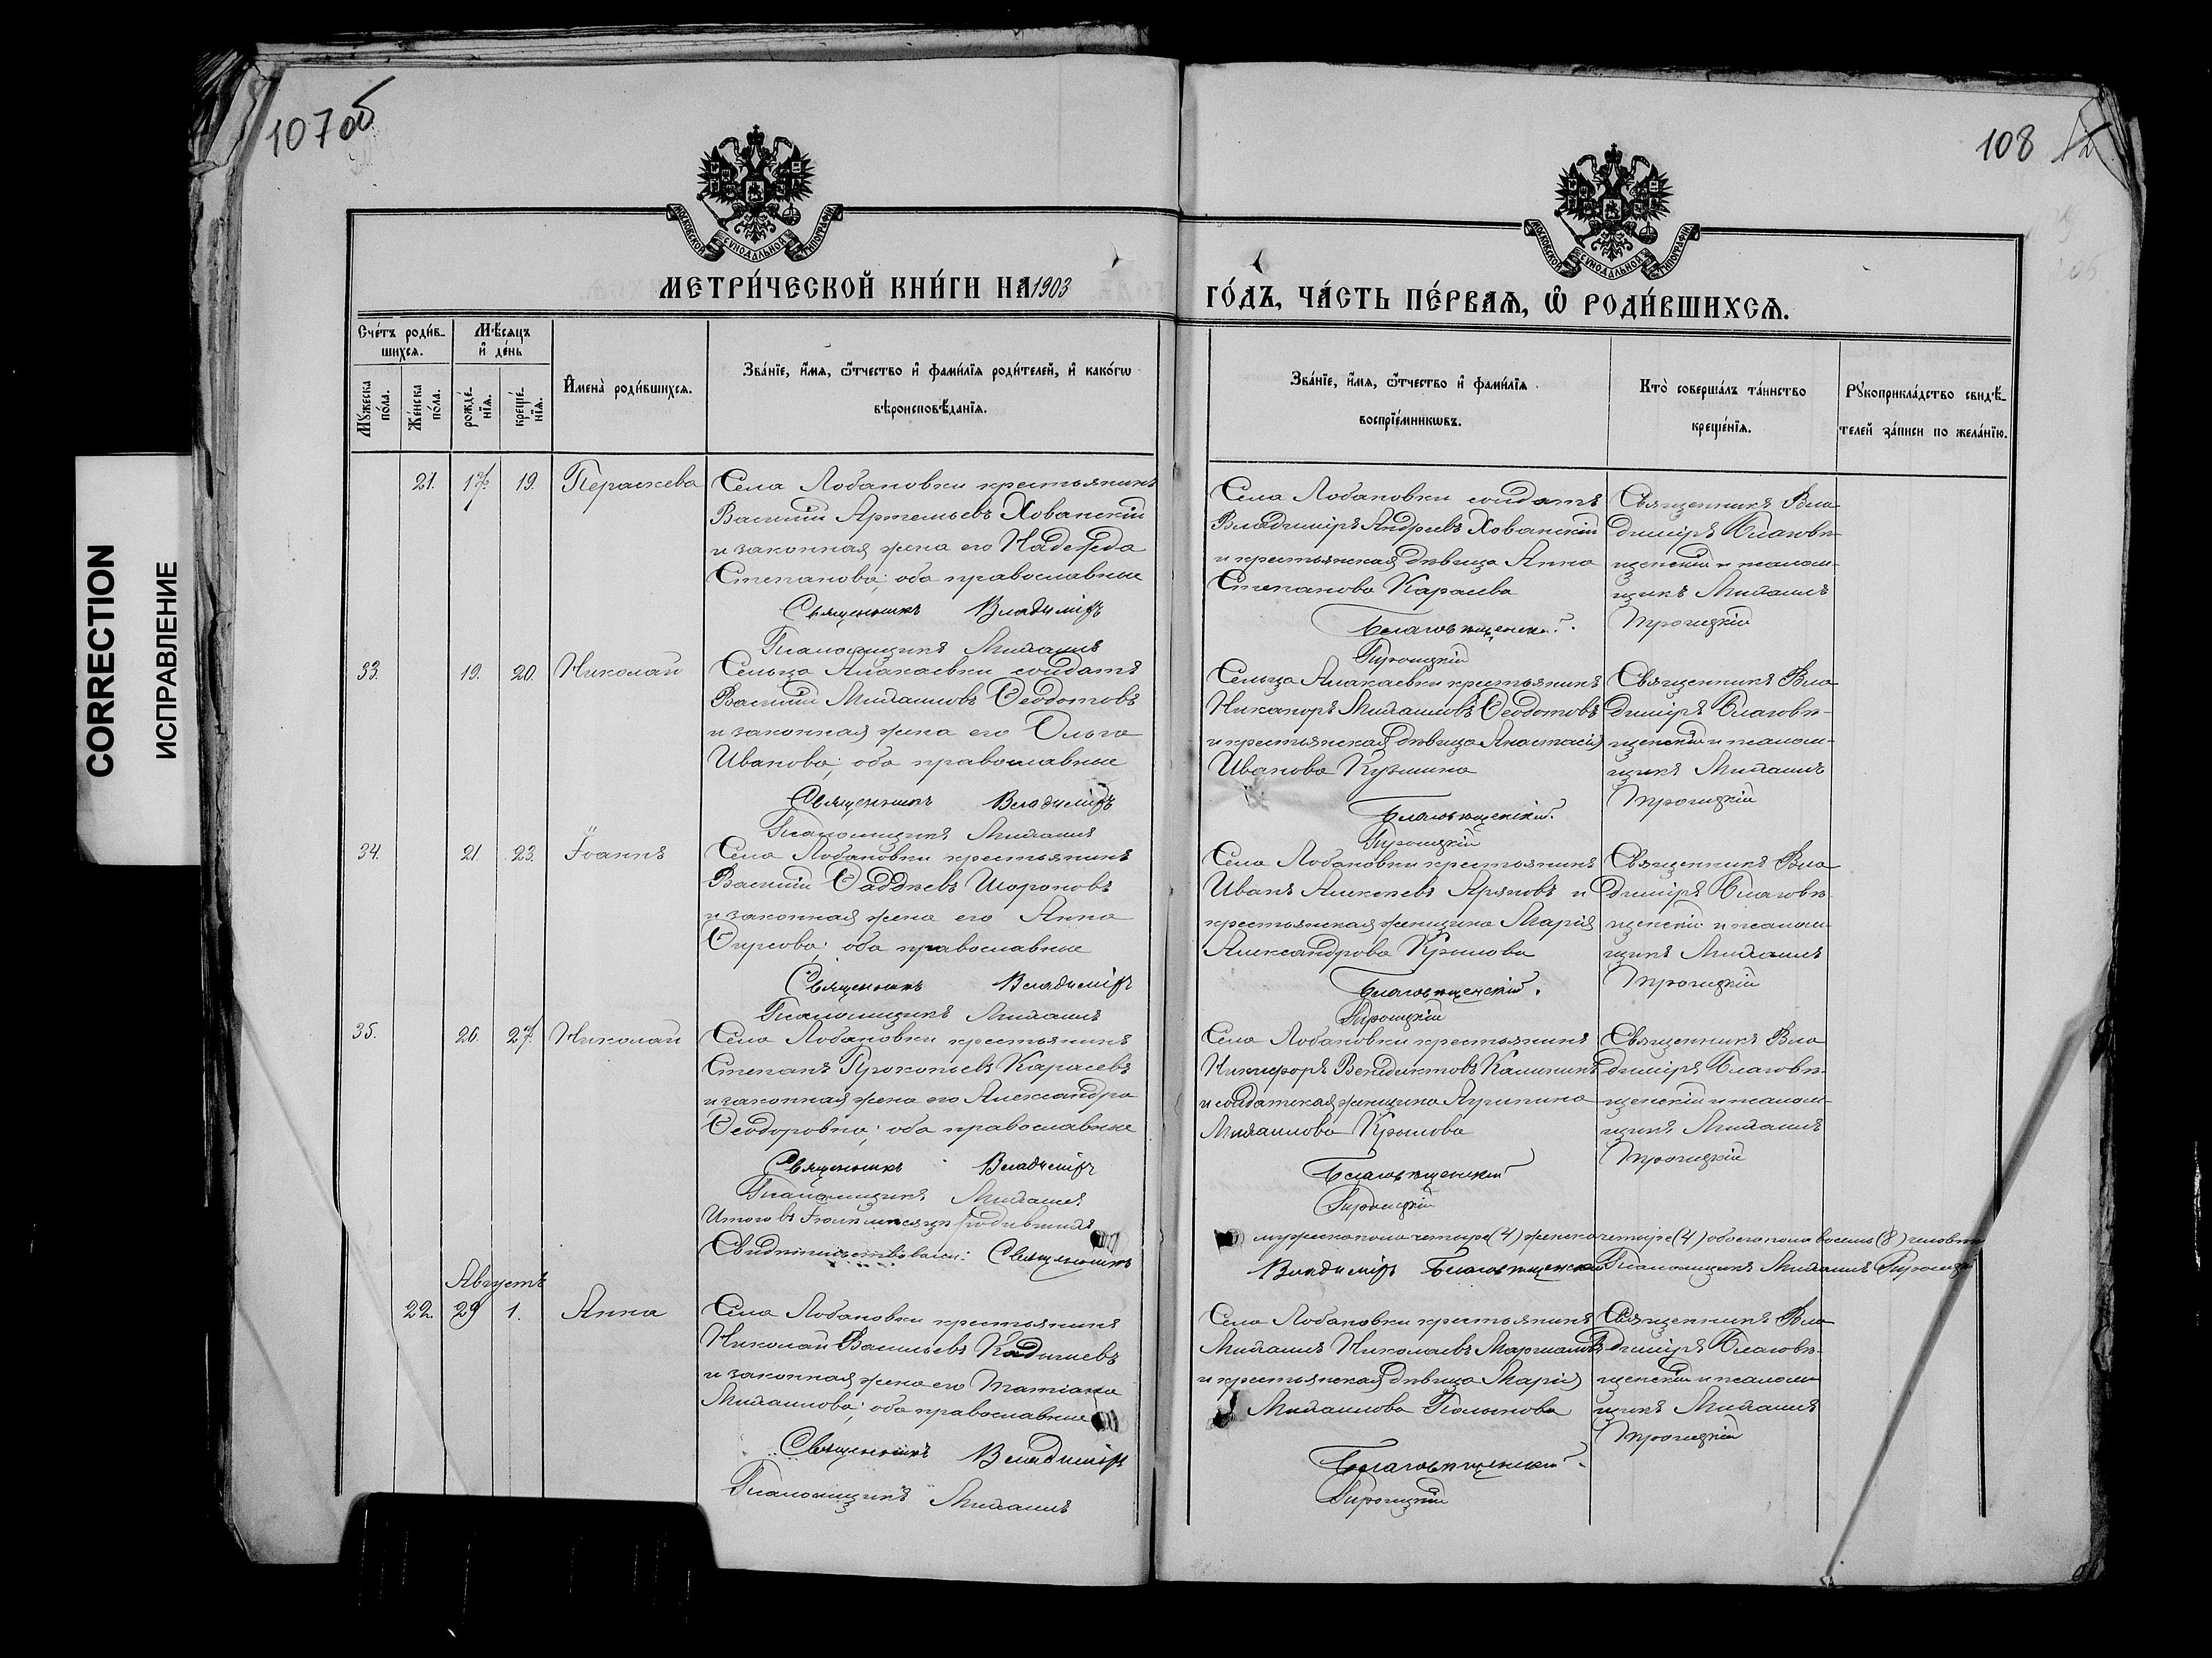 107 об
108
CORRECTION
ИСПРАВЛЕНИЕ
МОСКОВСКОЙ СѴНОДАЛЬНОЙ ТИПОГРАФІИ
МОСКОВСКОЙ СѴНОДАЛЬНОЙ ТИПОГРАФІИ
МЕТРИ́ЧЕСКОЙ КНИ́ГИ НА 1903
ГО́ДЪ, ЧА́СТЬ ПЕ́РВАѦ, Ѡ҆ РОДИ́ВШИХСѦ.
Сче́тъ роди́в-
шихсѧ.
Мѣ́сѧцъ
и҆ де́нь
Мꙋ́жеска
по́ла.
Же́нска
по́ла.
рожде́-
нїѧ.
креще́-
нїѧ.
И҆мена̀ роди́вшихсѧ.
Зва́нїе, и҆́мѧ, ѻ҆́тчество и҆ фами́лїѧ роди́телей, и҆ како́гѡ
вѣроисповѣ́данїѧ.
Зва́нїе, и҆́мѧ, ѻ҆́тчество и҆ фами́лїѧ
воспрїе́мникѡвъ.
Кто̀ соверша́лъ та́инство
креще́нїѧ.
Рꙋкоприкла́дство свидѣ́-
телей за́писи по жела́нїю.
21. 17. 19. Параскева
Села Лобановки крестьянинъ
Василій Артемьевъ Хованскій
и законная жена его Надежда
Степанова; оба православные
Священникъ Владиміръ
Псаломщикъ Михаилъ
Села Лобановки солдатъ
Владиміръ Андреевъ Хованскій
и крестьянская дѣвица Анна
Степанова Карасева
Благовѣщенскій.
Троицкій
Священникъ Вла-
диміръ Благовѣ-
щенскій и псалом-
щикъ Михаилъ
Троицкій
33. 19. 20. Николай
Сельца Алакаевки солдатъ
Василій Михаиловъ Ѳеодотовъ
и законная жена его Ольга
Иванова; оба православные
Священникъ Владиміръ
Псаломщикъ Михаилъ
Сельца Алакаевки крестьянинъ
Никаноръ Михаиловъ Ѳеодотовъ
и крестьянская дѣвица Анастасія
Иванова Кузмина
Благовѣщенскій.
Троицкій
Священникъ Вла-
диміръ Благовѣ-
щенскій и псалом-
щикъ Михаилъ
Троицкій
34. 21. 23. Іоаннъ
Села Лобановки крестьянинъ
Василій Ѳаддѣевъ Шороновъ
и законная жена его Анна
Ѳирсова; оба православные
Священникъ Владиміръ
Псаломщикъ Михаилъ
Села Лобановки крестьянинъ
Иванъ Алексѣевъ и
крестьянская женщина Марія
Александрова Крылова
Благовѣщенскій.
Троицкій
Священникъ Вла-
диміръ Благовѣ-
щенскій и псалом-
щикъ Михаилъ
Троицкій
35. 26. 27. Николай
Села Лобановки крестьянинъ
Степанъ Прокопьевъ Карасевъ
и законная жена его Александра
Ѳеодоровна; оба православные
Священникъ Владиміръ
Псаломщикъ Михаилъ
Села Лобановки крестьянинъ
Никифоръ Венедиктовъ Калининъ
и солдатская женщина Агрипина
Михаилова Крылова
Благовѣщенскій
Троицкій
Священникъ Вла-
диміръ Благовѣ-
щенскій и псалом-
щикъ Михаилъ
Троицкій
Итого въ Іюлѣ мѣсяцѣ родившихся
мужеска пола четыре (4) женска четыре (4) обоего пола восемь (8) человѣкъ
Свидѣтельствовали: Священникъ
Владиміръ Благовѣщенскій Псаломщикъ Михаилъ Троицкій
Августъ
22. 29 1. Анна
Села Лобановки крестьянинъ
Николай Васильевъ
и законная жена его Татіана
Михаилова; оба православные
Священникъ Владиміръ
Псаломщикъ Михаилъ
Села Лобановки крестьянинъ
Михаилъ Николаевъ
и крестьянская дѣвица Марія
Михаилова
Благовѣщенскій
Троицкій
Священникъ Вла-
диміръ Благовѣ-
щенскій и псалом-
щикъ Михаилъ
Троицкій